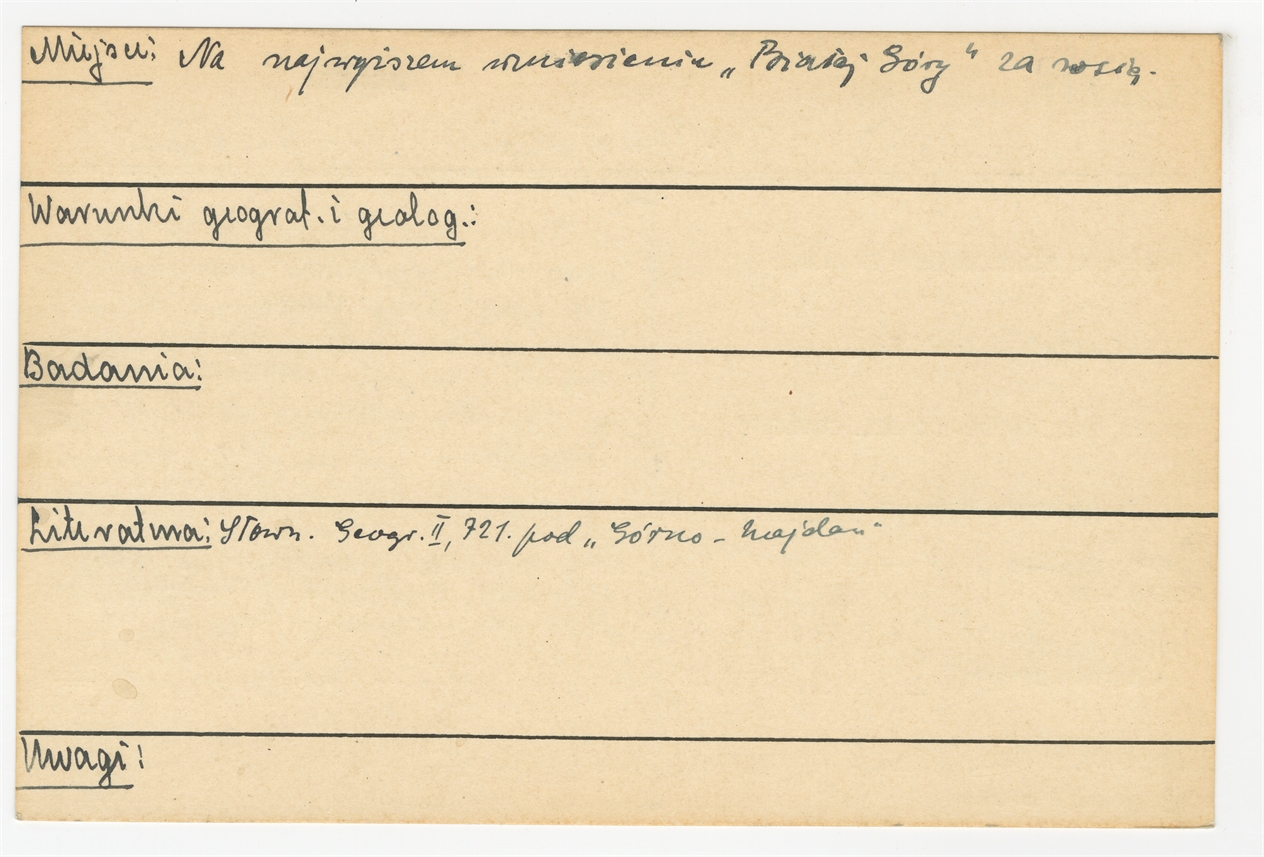 Miejsce: Na najwyższem wzniesieniu „Białej Góry" za wsią.
Warunki geograf. i geolog.:
Badania:
Literatura: Słown. Geogr. II, 721. pod „Górno - Majdan"
Uwagi: